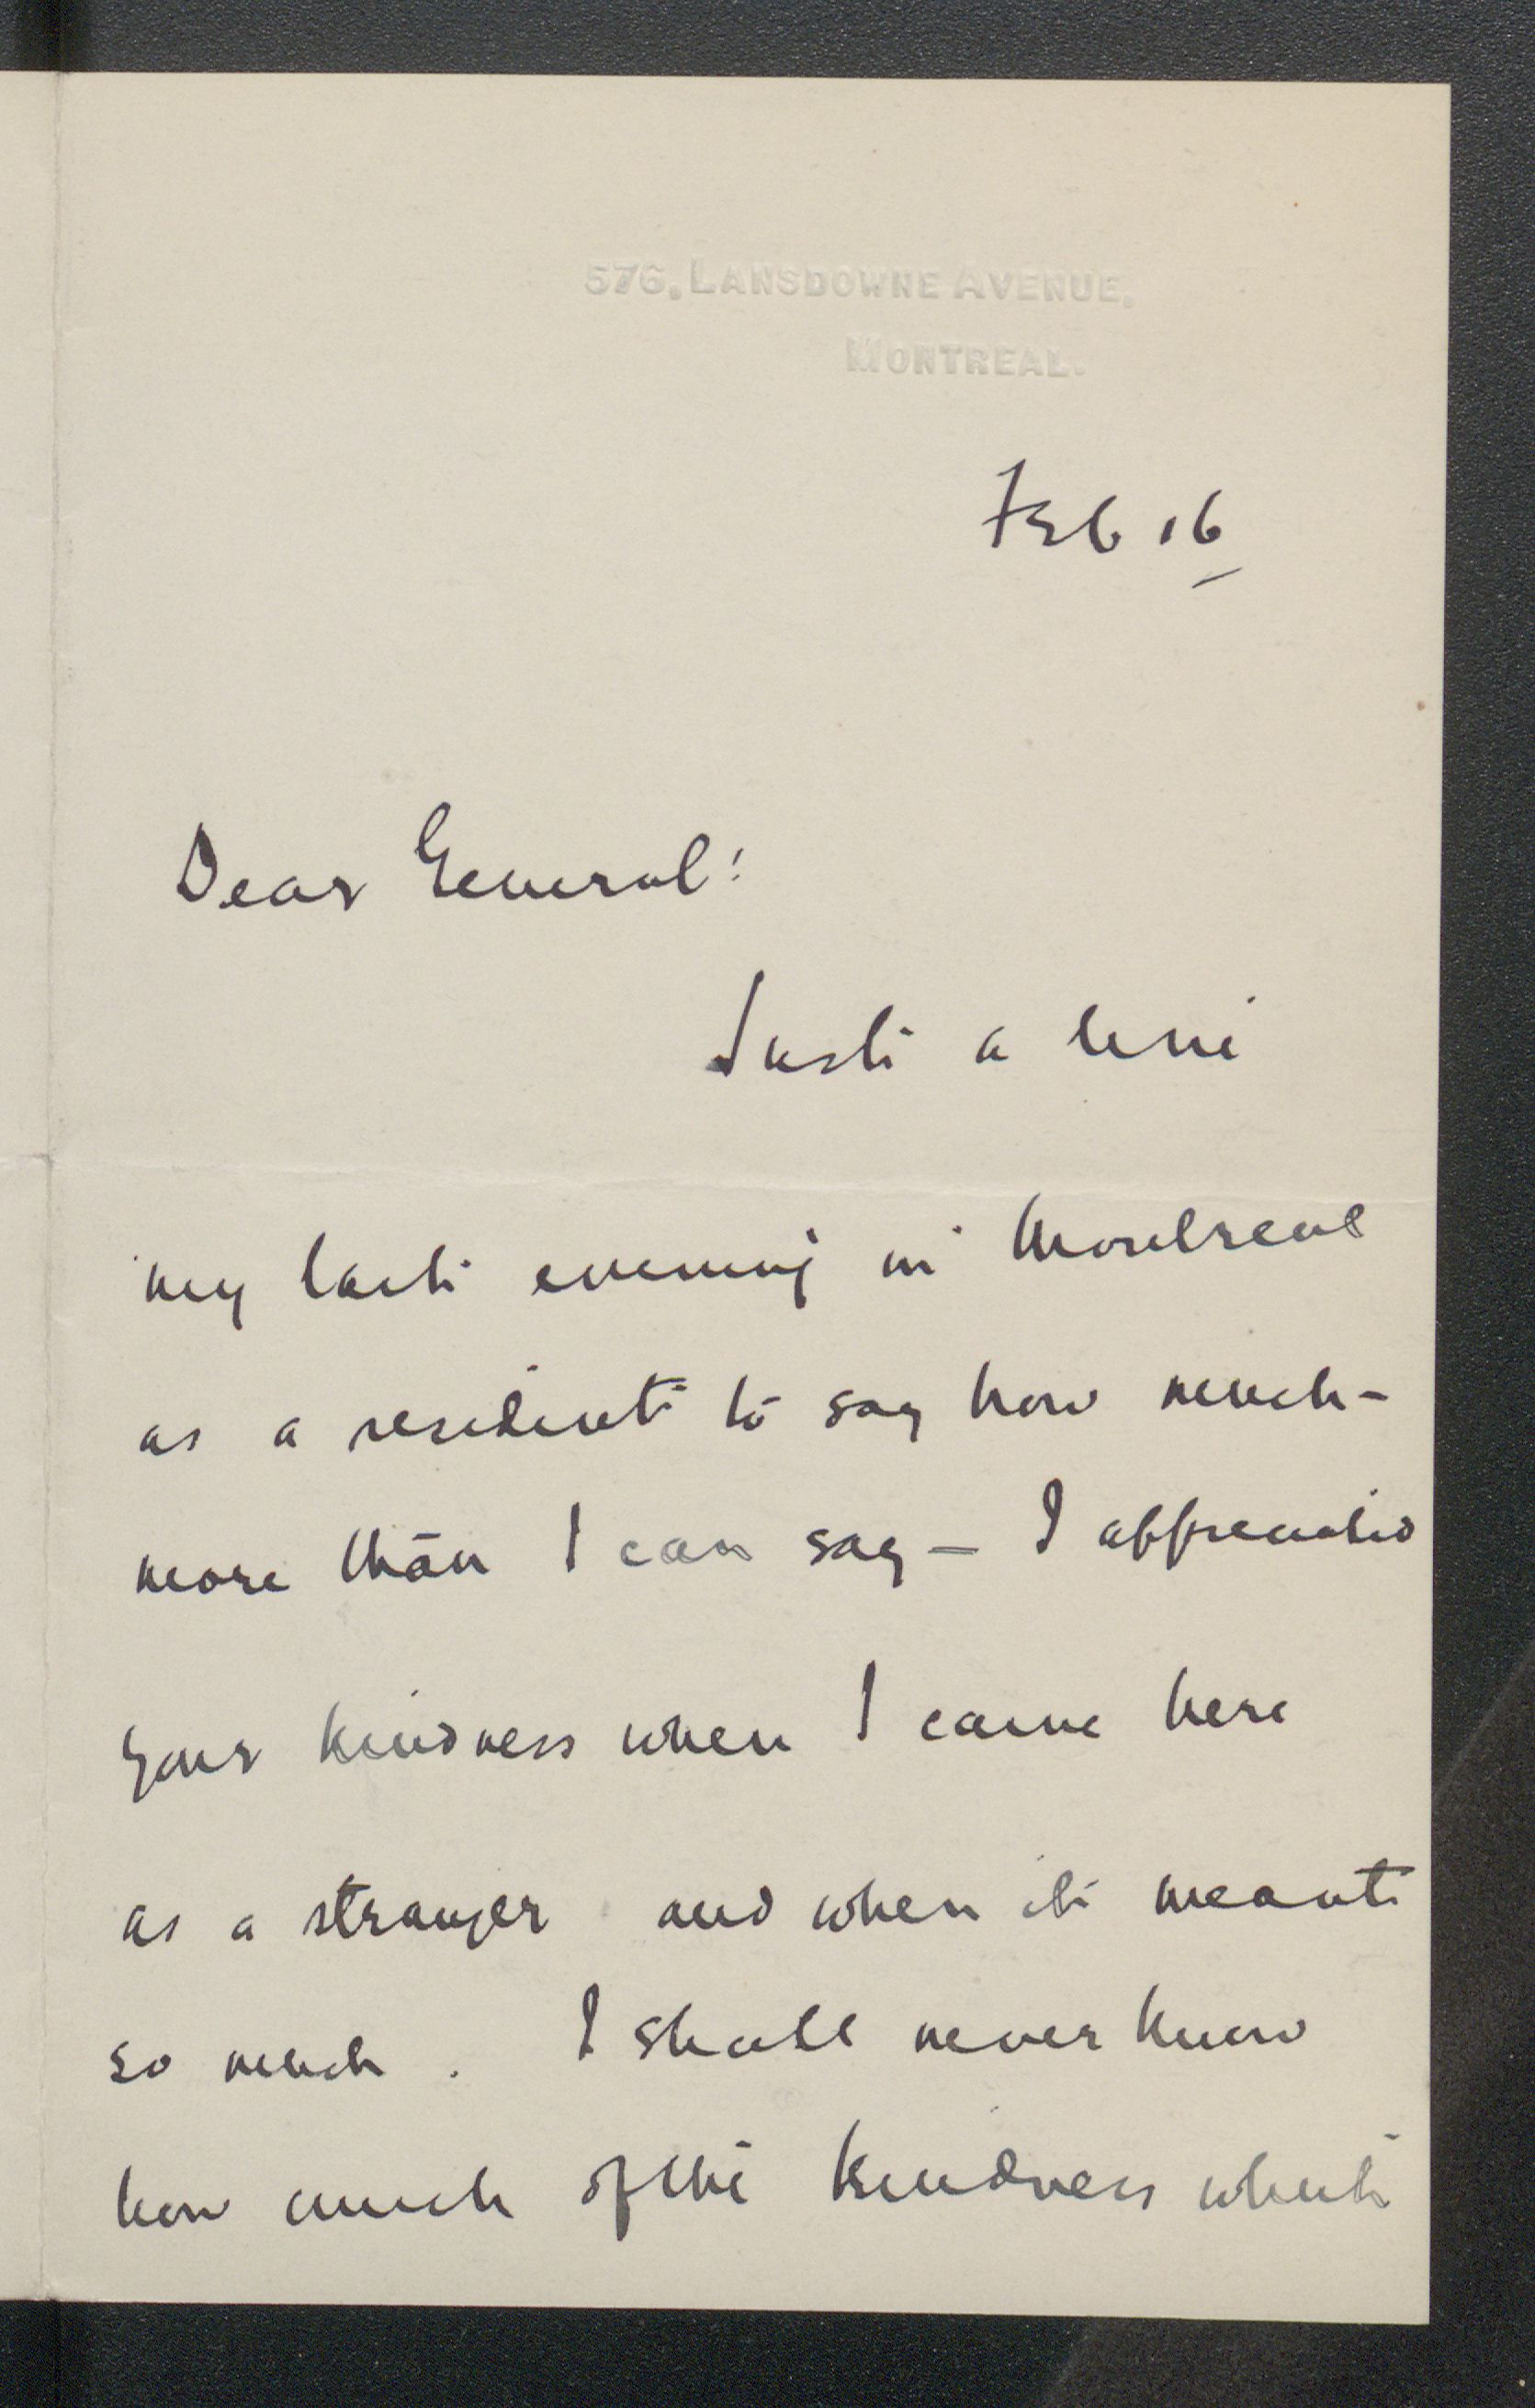 576, LANSDOWNE AVENUE.
MONTREAL.
Feb 16
Dear General:
Just a line
my last evening in Montreal
as a resident to say how much -
more than I can say - I appreciate
your kindness when I came here
as a stranger and when it meant
so much. I shall never know
how much of the kindness which